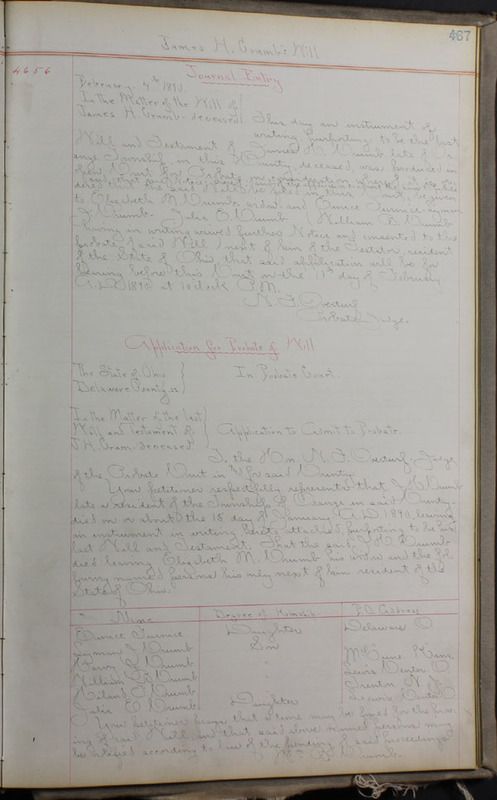 467
James H. Crumb's Will
4656
Journal Entry
February 4th 1890
In the Matter of the Will of
James H. Crumb deceased
This day an instrument of
writing purporting to be the last
Will and Testament of James H. Crumb late of
Township in this County, deceased, was produced in
open Court for Probate
dered that the said be given
to Elizabeth M. Crumb widow and Eunice
Crumb Jales E. Crumb William B. Crumb
having in writing waived further Notice and consented to the
probate of said Will next of kin of the Testator, resident
of the State of Ohio, that said application will be for
hearing before this Court on the 11th day of February
A.D. 1890 at 1 o'clock P.M.
N. F. Overturf
Probate Judge.
Application for Probate of Will
The State of Ohio
Delaware County ss
In Probate Court.
In the Matter of the last
Will and Testament of
J.H. Crum. deceased
Application to Admit to Probate.
To the Hon N. F. Overturf, Judge
of the Probate Court in & for said County
Your petitioner respectfully represents that J. H. Crumb
late a resident of the Township of Orange in said County
died on or about the 18 day of January A.D. 1890, leaving
an instrument in writing, hereto attached, purporting to be his
last Will and Testament. That the said J. H. Crumb
died leaving Elizabeth M. Crumb his widow and the fol-
lowing named persons his only next of kin resident of the
State of Ohio.
Name
Degree of Kinship
P.O. Address
Eunice
Daughter
Delaware O
Lyman J Crumb
Son
Crumb
McCune Kans.
William B Crumb
Lewis Center O
Crumb
Trenton N.J.
Jales E Crumb
Daughter
Lewis Center O
Your petitioner prays that a time may be fixed for the prov-
ing of said Will and that said above named persons may
be notified according to law of the pending of said proceedings
Crumb.